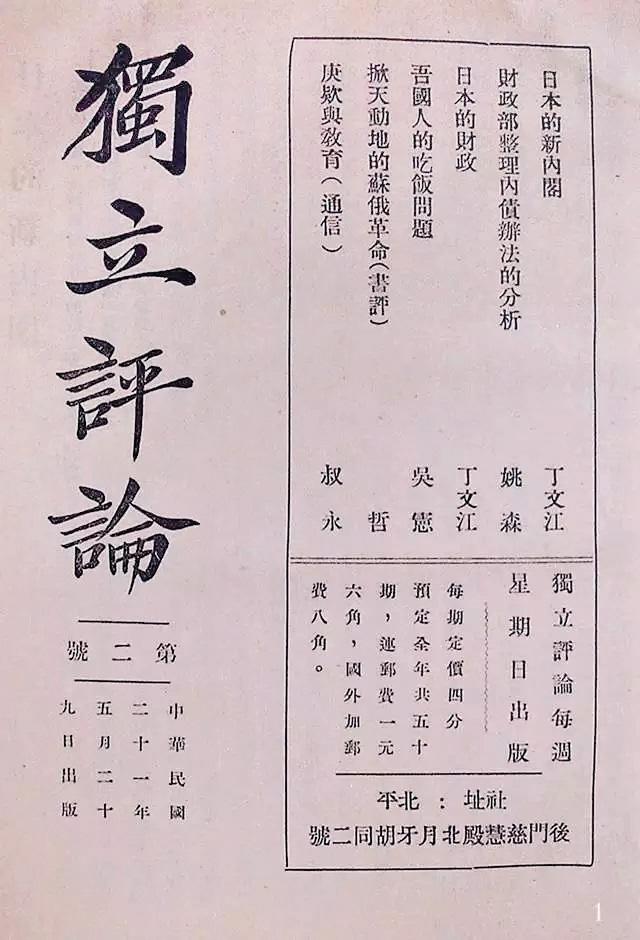 獨立評論
第二號
中華民國
二十一年
五月二十
九日出版
日本的新內閣 丁文江
財政部整理內債辦法的分析 姚森
日本的財政 丁文江
吾國人的吃飯問題 吳憲
掀天動地的蘇俄革命(書評) 哲
庚欵與教育(通信) 叔永
獨立評論每週
星期日出版
每期定價四分
預定全年共五十
期，連郵費一元
六角，國外加郵
費八角。
社址：北平
後門慈慧殿北月牙胡同二號
1